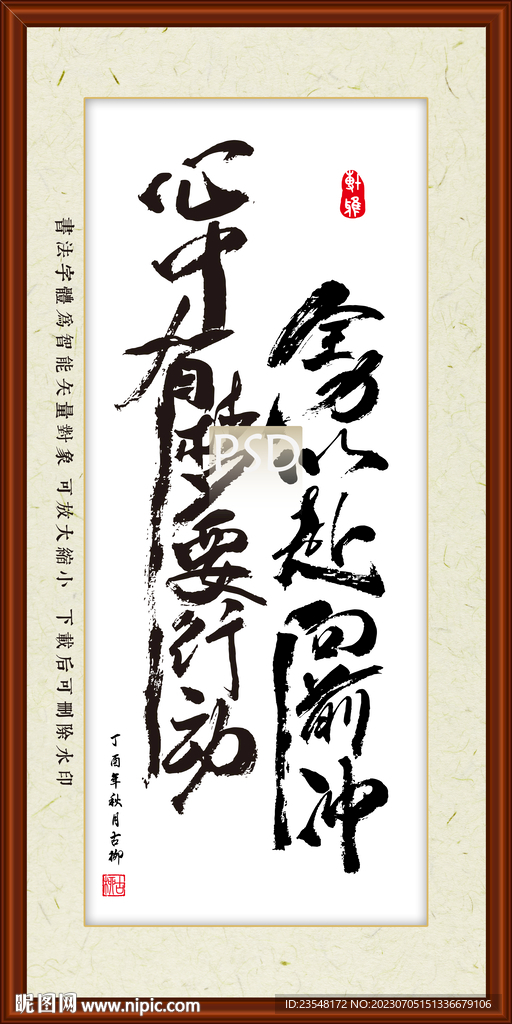 軒雅
全力以赴向前冲
心中有梦要行动
丁酉年秋月古柳
古柳
書法字體為智能矢量對象 可放大縮小 下載后可刪除水印
PSD
昵图网 www.nipic.com
ID:23548172 NO:20230705151336679106